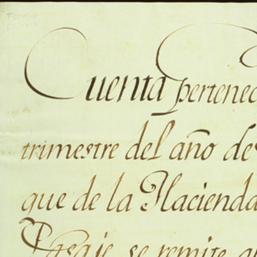 Cuenta pertenec
trimestre del año de
que de la Hacienda
Pasaje se remite a